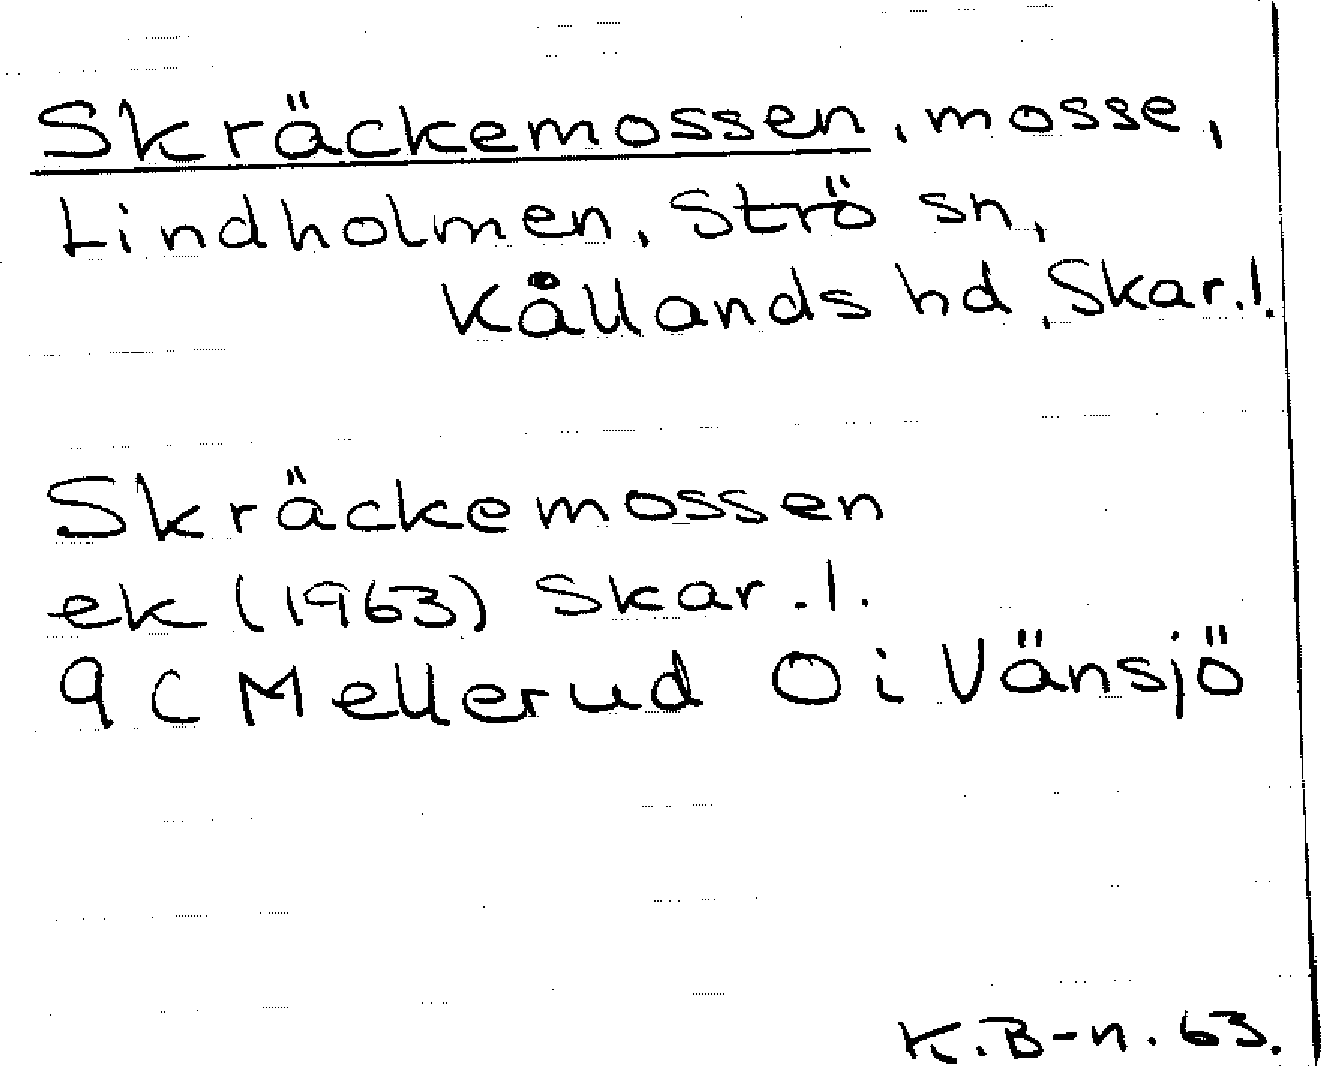 Skräckemossen, mosse,
Lindholmen, Strö sn,
Kållands hd, Skar.l.
Skräckemossen
ek (1963) Skar.l.
9C Mellerud Ö i Vänsjö
K.B-n. 63.